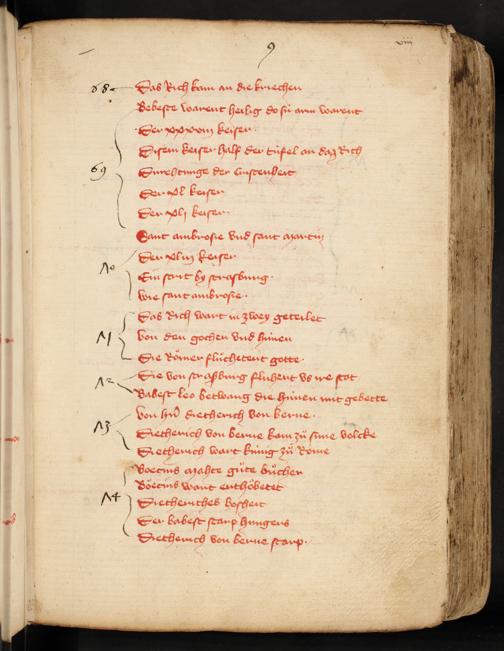 9
viiij
68 Das Rich kam an die kriechen
Bebeste warent heilig do sü arm warent
Der xxxxviij keiser
Disem keiser half der tüfel an daz Rich
69 Durehtunge der Cristenheit
Der xl keiser
Der xlj keiser
Sant ambrosie vnd sant martin
Der xlij keiser
70 Ein strit by strasburg
Wie sant ambrosie
Das Rich wart in zwey geteilet
71 Von den gochen vnd hünen
Die Römer flüchetent gotte
72 Die von strasburg fluhent vs ire stat
Babest leo betwang die hünen mit gebette
Von hern dietherich von berne
73 Dietherich von berne kam zü sime volcke
Dietherich wart künig zü Rome
Boecius mahte güte bücher
Böecius wart enthöbetet
74 Dietheriches bosheit
Der babest starp hungers
Dietherich von berne starp